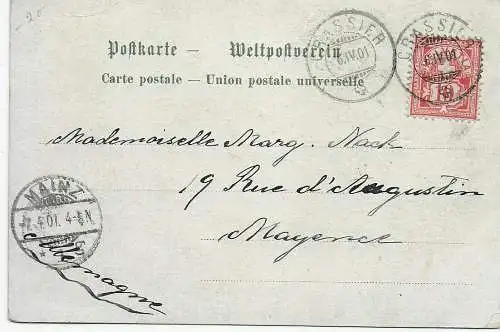 -20
Postkarte — Weltpostverein
Carte postale — Union postale universelle
GRASSIER
6.IV.01
GRASSIER
6.IV.01
10
Mademoiselle Marg. Nack
19 Rue d'Augustin
Mayence
Allemagne
MAINZ
7.4.01. 4-5N.